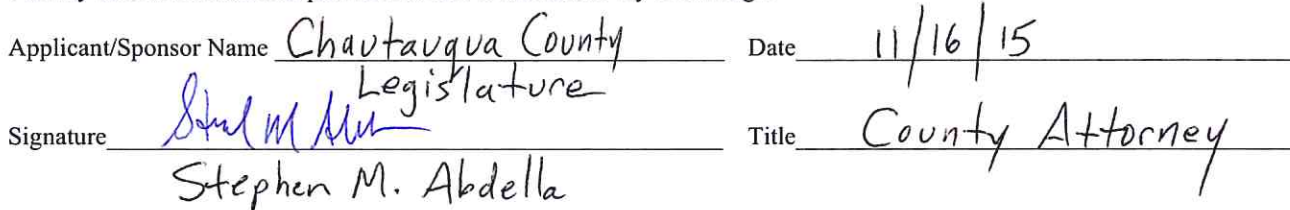 Applicant/Sponsor Name Chautauqua County Date 11/16/15
Legislature
Signature Title County Attorney
Stephen M. Abdella